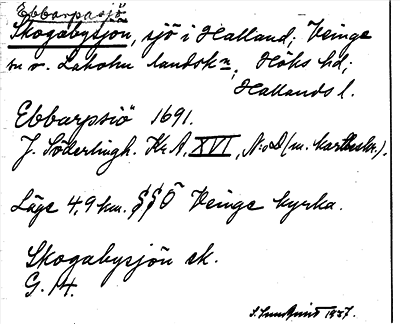 Ebbarpasjö
Skogabysjön, sjö i Halland; Veinge
m. v. Laholm landskn; Höks hd;
Hallands l.
Ebbarpsiö 1691.
J. Söderlingh. Kr. A. XVI, N:o D (m. kartbeskr.).
Läge 4,9 km. SSÖ Veinge kyrka.
Skogabysjön ek.
G. 14.
1927.